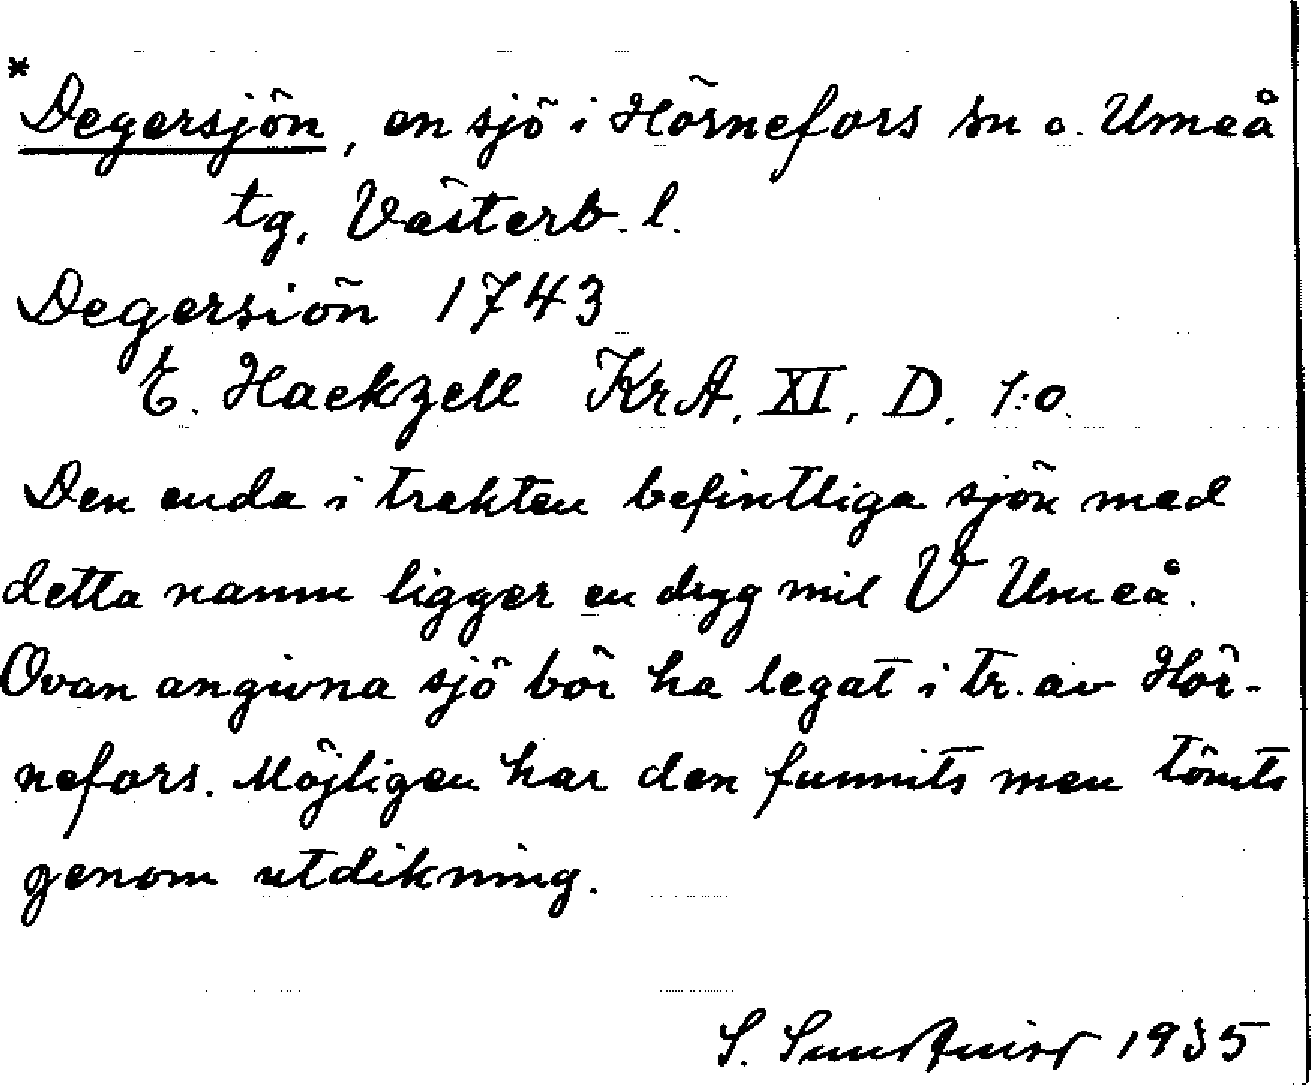 * Degersjön, en sjö i Hörnefors sn o. Umeå
tg, Västerb. l.
Degersiön 1743
E. Hackzell KrA. XI. D. 1:o.
Den enda i trakten befintliga sjön med
detta namn ligger en dryg mil V Umeå.
Ovan angivna sjö bör ha legat i tr. av Hör-
nefors. Möjligen har den funnits men tömts
genom utdikning.
S. Sundquist 1935